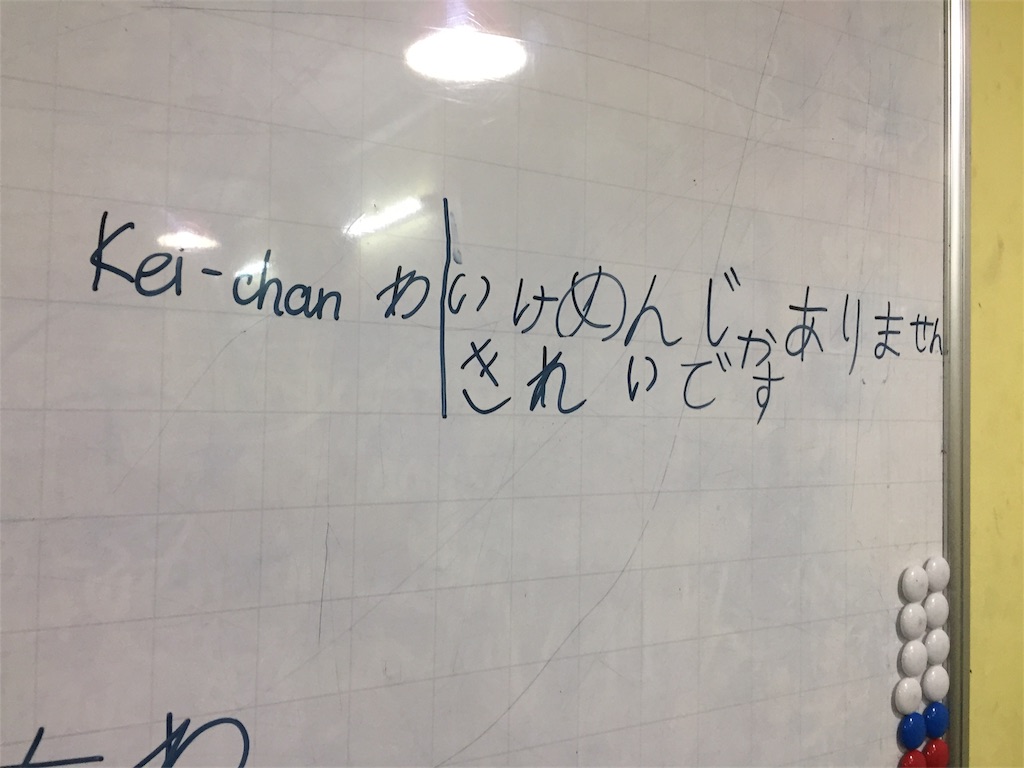 Kei-chan わ いけめんじゃありません
きれいです